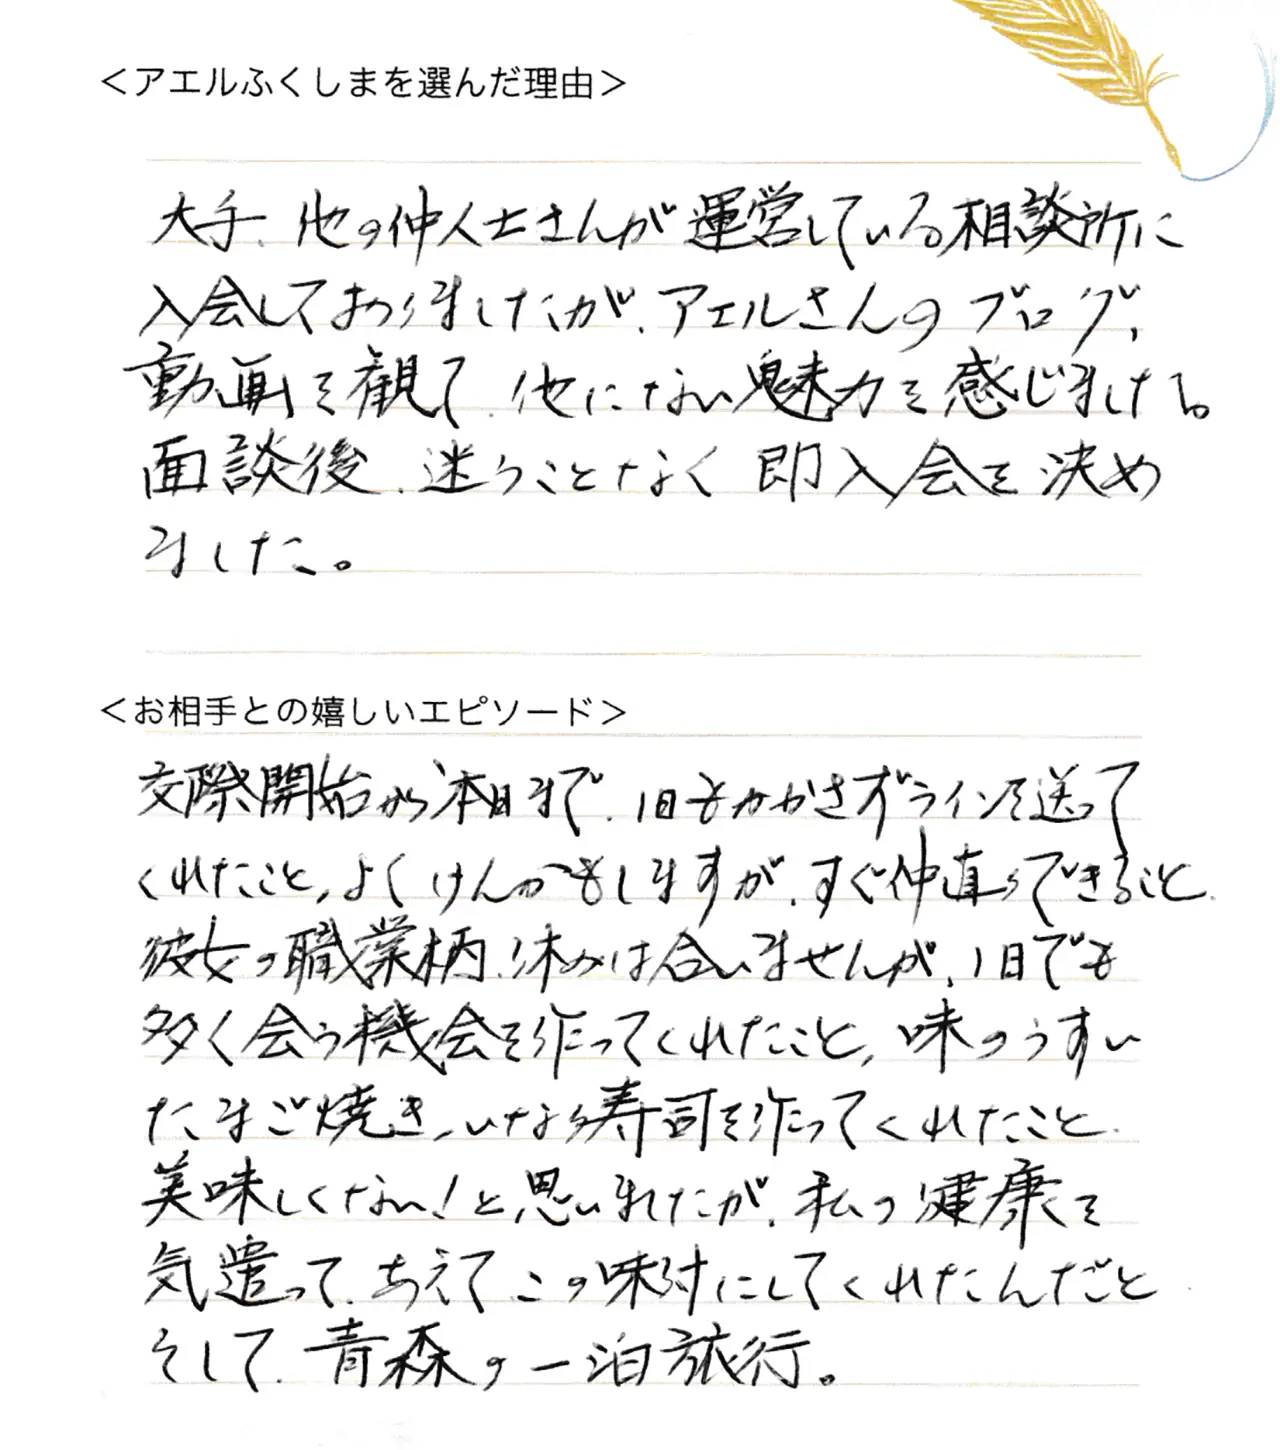 ＜アエルふくしまを選んだ理由＞
大手、他の仲人士さんが運営している相談所に
入会しておりましたが、アエルさんのブログ、
動画を観て、他にない魅力を感じました。
面談後、迷うことなく即入会を決め
ました。
＜お相手との嬉しいエピソード＞
交際開始から本日まで、1日もかかさずラインを送って
くれたこと、よくけんかもしますが、すぐ仲直りできること、
彼女の職業柄、休みは合いませんが、1日でも
多く会う機会を作ってくれたこと、味のうすい
たまご焼き、いなり寿司を作ってくれたこと、
美味しくない！と思いましたが、私の健康を
気遣って、あえてこの味付にしてくれたんだと
そして、青森の一泊旅行。